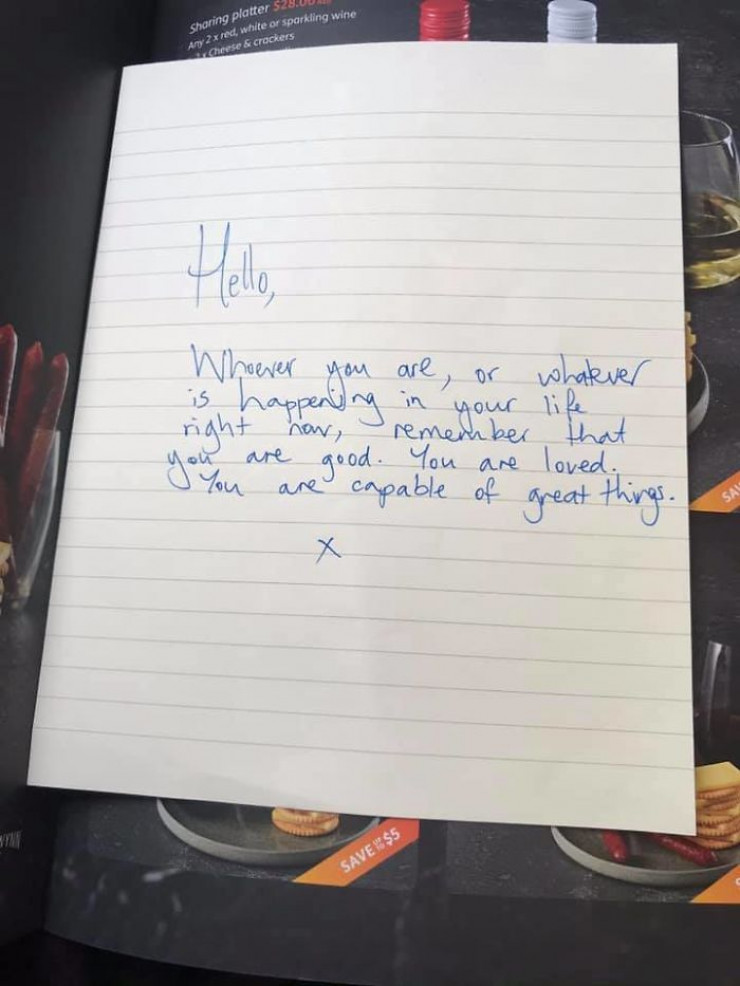 Sharing platter $28.00
Any 2 x red, white or sparkling wine
Cheese & crackers
Hello,
Whoever you are, or whatever
is happening in your life
right now, remember that
you are good. You are loved.
You are capable of great things.
x
SAVE UP TO $5